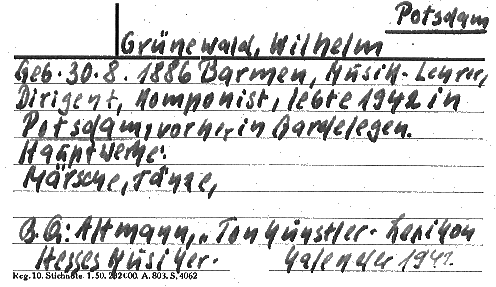 Potsdam
Grünewald, Wilhelm
Geb. 30.8.1886 Barmen, Musik-Lehrer,
Dirigent, Komponist, lebte 1942 in
Potsdam, vorher in Gardelegen.
Hauptwerke:
Märsche, Tänze,
B.Q.: Altmann, „Tonkünstler-Lexikon
Hesses Musiker-Kalender 1941.
Reg. 10. Stichnote. 1. 50. A. 803. S. 4062